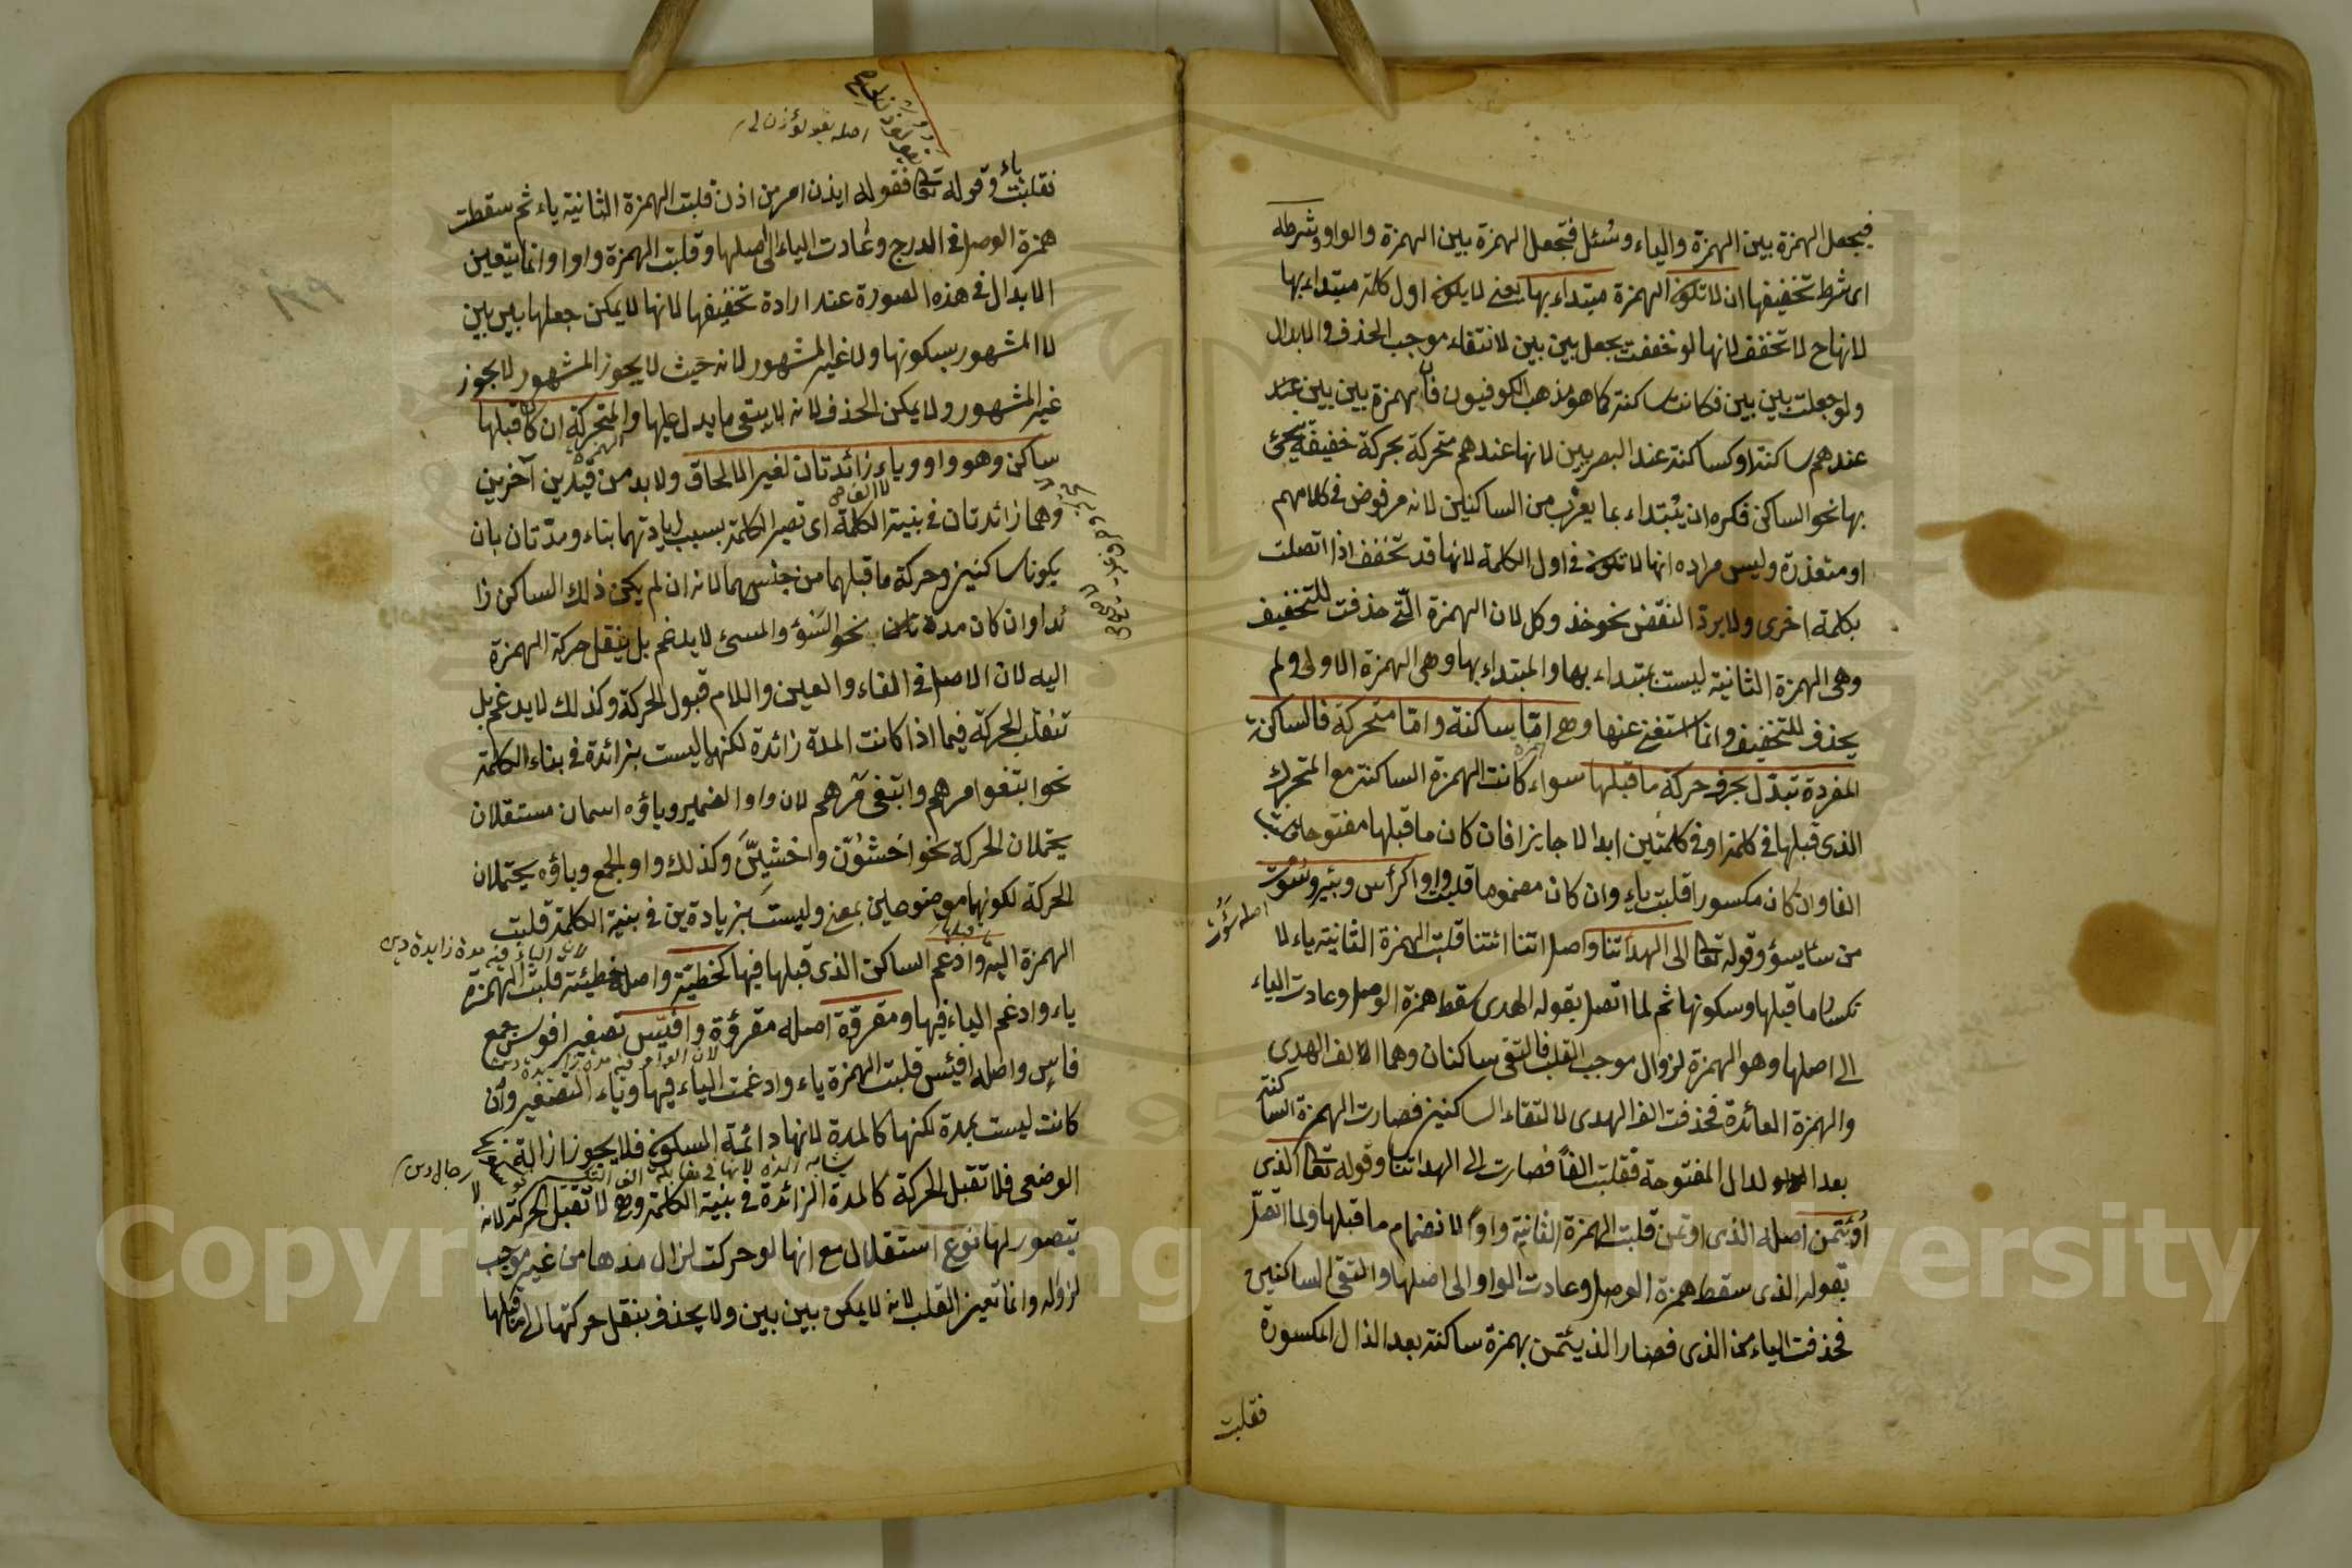 فيجعل الهمزة بين الهمزة والياء وسئل فتجعل الهمزة بين الهمزة والواو وشرطه
اى شرط تخفيفها ان لا تكون الهمزة مبتداء بها يعنى لا يكون اول كلمة مبتداء بها
لانها ح لا تخفف لانها لو خففت بجعل بين بين لانتفاء موجب الحذف والابدال
ولو جعلت بين بين فكانت ساكنة كما هو مذهب الكوفيون فان همزة بين بين عند
عندهم ساكنة او كساكنة عند البصريين لانها عندهم متحركة بحركة خفيفة يجئ
بها نحو الساكن فكره ان يبتداء بما يقرب من الساكنين لانه مرفوض فى كلامهم
او متعذرة وليس مراده انها لا تكون فى اول الكلمة لانها قد تخفف اذا اتصلت
بكلمة اخرى ولا يرد النقض نحو خذ وكل لان الهمزة التى حذفت للتخفيف
وهى الهمزة الثانية ليست بمبتداء بها والمبتداء بها وهى الهمزة الاولى ولم
يحذف للتخفيف وانما استغنى عنها وهى اما ساكنة واما متحركة فالساكنة
المفردة تبدل بحرف حركة ما قبلها سواء كانت الهمزة الساكنة مع المتحرك
الذى قبلها فى كلمة او فى كلمتين ابدالا جايزا فان كان ما قبلها مفتوحا قلبت
الفا وان كان مكسورا قلبت ياء وان كان مضموما قلبت واوا كرأس وبئر وسوت
اصله سؤت
من ساء يسوء وقوله تعا الى الهداتنا واصل اتنا ائتنا قلبت الهمزة الثانية ياء لا
نكسار ما قبلها وسكونها ثم لما اتصل بقوله الهدى سقط همزة الوصل وعادت الياء
الى اصلها وهو الهمزة لزوال موجب القلب فالتقى ساكنان وهما الالف الهدى
والهمزة العائدة فحذفت الف الهدى لالتقاء الساكنين فصارت الهمزة الساكنة
بعد الدال المفتوحة فقلبت الفا فصارت الى الهداتنا وقوله تعا الذى
اؤتمن اصله الذى اوتمن قلبت الهمزة الثانية واوا لانضمام ما قبلها ولما اتصل
بقوله الذى سقط همزة الوصل وعادت الواو الى اصلها والتقى الساكنين
فحذفت الياء من الذى فصار الذيئتمن بهمزة ساكنة بعد الذال المكسورة
فقلبت
اصله يقولؤذن لى
فقلبت ياء وقوله تعا فقوله ايذن امر من اذن قلبت الهمزة الثانية ياء ثم سقطت
همزة الوصل فى الدرج وعادت الياء الى اصلها وقلبت الهمزة واوا وانما يتعين
الابدال فى هذه الصورة عند ارادة تخفيفها لانها لا يمكن جعلها بين بين
لا المشهور بسكونها ولا غير المشهور لانه حيث لا يجوز المشهور لا يجوز
غير المشهور ولا يمكن الحذف لانه لا يبقى ما يدل عليها والمتحركة ان كان قبلها
ساكن وهو واو وياء زائدتان لغير الالحاق ولا بد من قيدين آخرين
وهما زائدتان فى بنية الكلمة اى تصير الكلمة بسبب زيادتهما بناء ومدتان بان
يكونا ساكنين وحركة ما قبلهما من جنسهما لانه ان لم يكن ذلك الساكن زا
ئدا وان كان مدة نحو السوء والمسئ لا يدغم بل ينقل حركة الهمزة
اليه لان الاصل فى الفاء والعين واللام قبول الحركة وكذلك لا يدغم بل
تنقلب الحركة فيما اذا كانت المدة زائدة لكنها ليست بزائدة فى بناء الكلمة
نحو ابتغوا مرهم وابتغى مرهم لان واو الضمير وياؤه اسمان مستقلان
يحتملان الحركة نحو اخشون واخشين وكذلك واو الجمع وياؤه يحتملان
الحركة لكونها موضوعين بمعنى وليست بزيادة ين فى بنية الكلمة قلبت
الهمزة اليه وادغم الساكن الذى قبلها فيها كخطية واصله خطيئة قلبت الهمزة
ياء وادغم الياء فيها ومقروة اصله مقروءة وافيس تصغير افوس جمع
فاس واصله افيئس قلبت الهمزة ياء وادغمت الياء فيها وياء التصغير وان
كانت ليست بمدة لكنها كالمدة لانها دائمة السكون فلا يجوز ازالة
الوضعى فلا تقبل الحركة كالمدة الزائدة فى بنية الكلمة وهى لا تقبل الحركة لانه
يتصور لها نوع استقلال مع انها لو حركت لزال مدها من غير موجب
لزواله وانما تعين القلب لانه لا يمكن بين بين ولا يحذف بنقل حركتها الى ما قبلها
Copyright © King Saud University